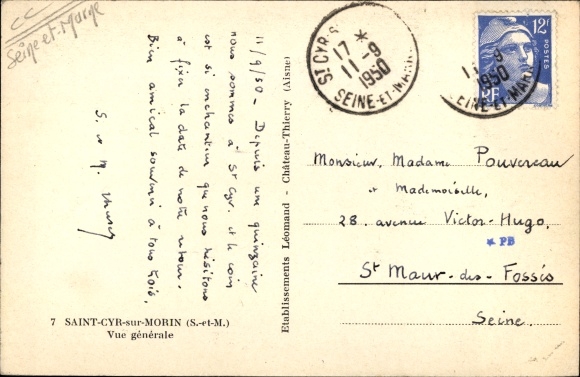 CC
Seine-et-Marne
11/9/50 - Depuis une quinzaine
nous sommes à St Cyr. et le coin
est si enchanteur que nous hésitons
à fixer la date de notre retour.
Bien amical souvenir à tous trois.
S. et M.
7 SAINT-CYR-sur-MORIN (S.-et-M.)
Vue générale
Etablissements Léomand - Château-Thierry (Aisne)
ST CYR S
17 *
11-9
1950
SEINE-ET-MARNE
12F
POSTES
RF
9
1950
SEINE-ET-MARNE
Monsieur, Madame Pouvereau
et Mademoiselle,
28. avenue Victor-Hugo.
* PB
St Maur-des-Fossés
Seine.